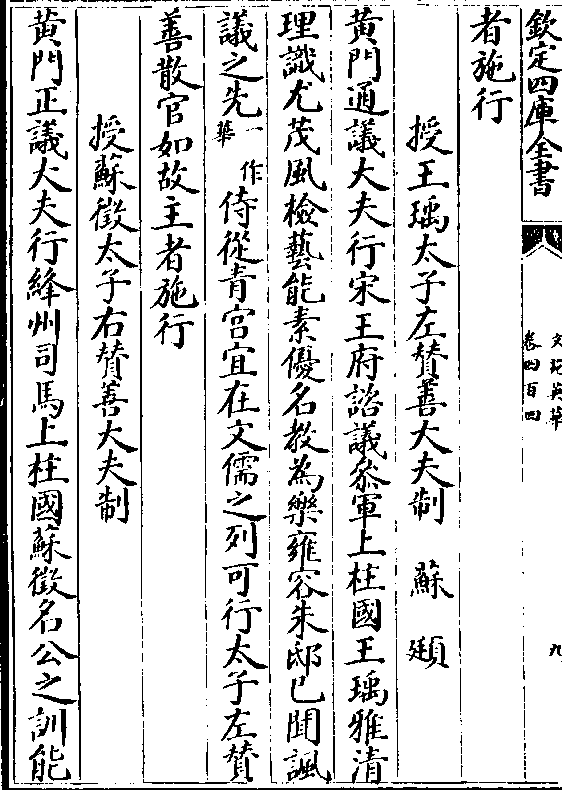 欽定四庫全書
文苑英華
卷四百四
九
者施行
授王瑀太子左賛善大夫制 蘇頲
黄門通議大夫行宋王府諮議叅軍上柱國王瑀雅清
理識尤茂風檢藝能素優名教為樂雍容朱邸已聞諷
議之先一作華侍從青宫宜在文儒之列可行太子左賛
善散官如故主者施行
授蘇徵太子右賛善大夫制
黄門正議大夫行絳州司馬上柱國蘇徵名公之訓能